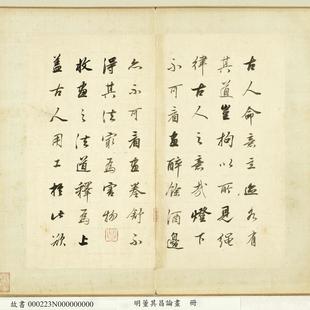 古人命意立迹各有
其道豈拘以所見繩
律古人之意哉燈下
不可看畫醉餘酒邊
亦不可看畫卷舒不
得其法寂為害物
收畫之法道釋為上
蓋古人用工於此欲
故書 000223N000000000
明董其昌論畫 冊